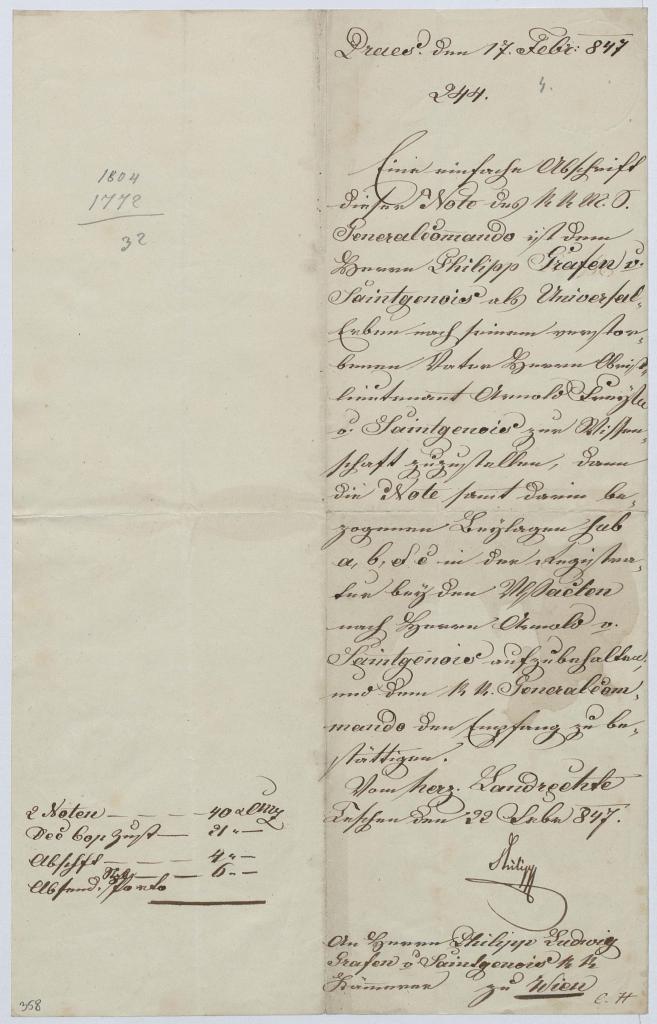 1804
1772
32
2 Noten — — — 40 x CMz
Dec Cop Zust — 21 " —
Abschft — — — 4 " —
Absend. Porto 6 " —
358
Praes. den 17. Febr: 847
244.
Eine einfache Abschrift
dieser Note des k k M. S.
Generalcom̄ando ist dem
Herrn Philipp Grafen v.
Saintgenois als Universal-
Erben nach seinem verstor-
benen Vater Herrn Obrist-
lieutenant Arnold Freyh
v. Saintgenois zur Wissen-
schaft zuzustellen, dann
die Note samt darin be-
zogenen Beylagen sub
a, b, & c in der Registra-
tur bey den Acten
nach Herrn Arnold v.
Saintgenois aufzubehalten,
und dem k k. Generalcom-
mando den Empfang zu be-
stättigen.
Vom herz. Landrechte
Teschen den 22 Febr 847.
Philipp
An Herrn Philipp Ludwig
Grafen v Saintgenois k k
Kämmerer zu Wien
C. H